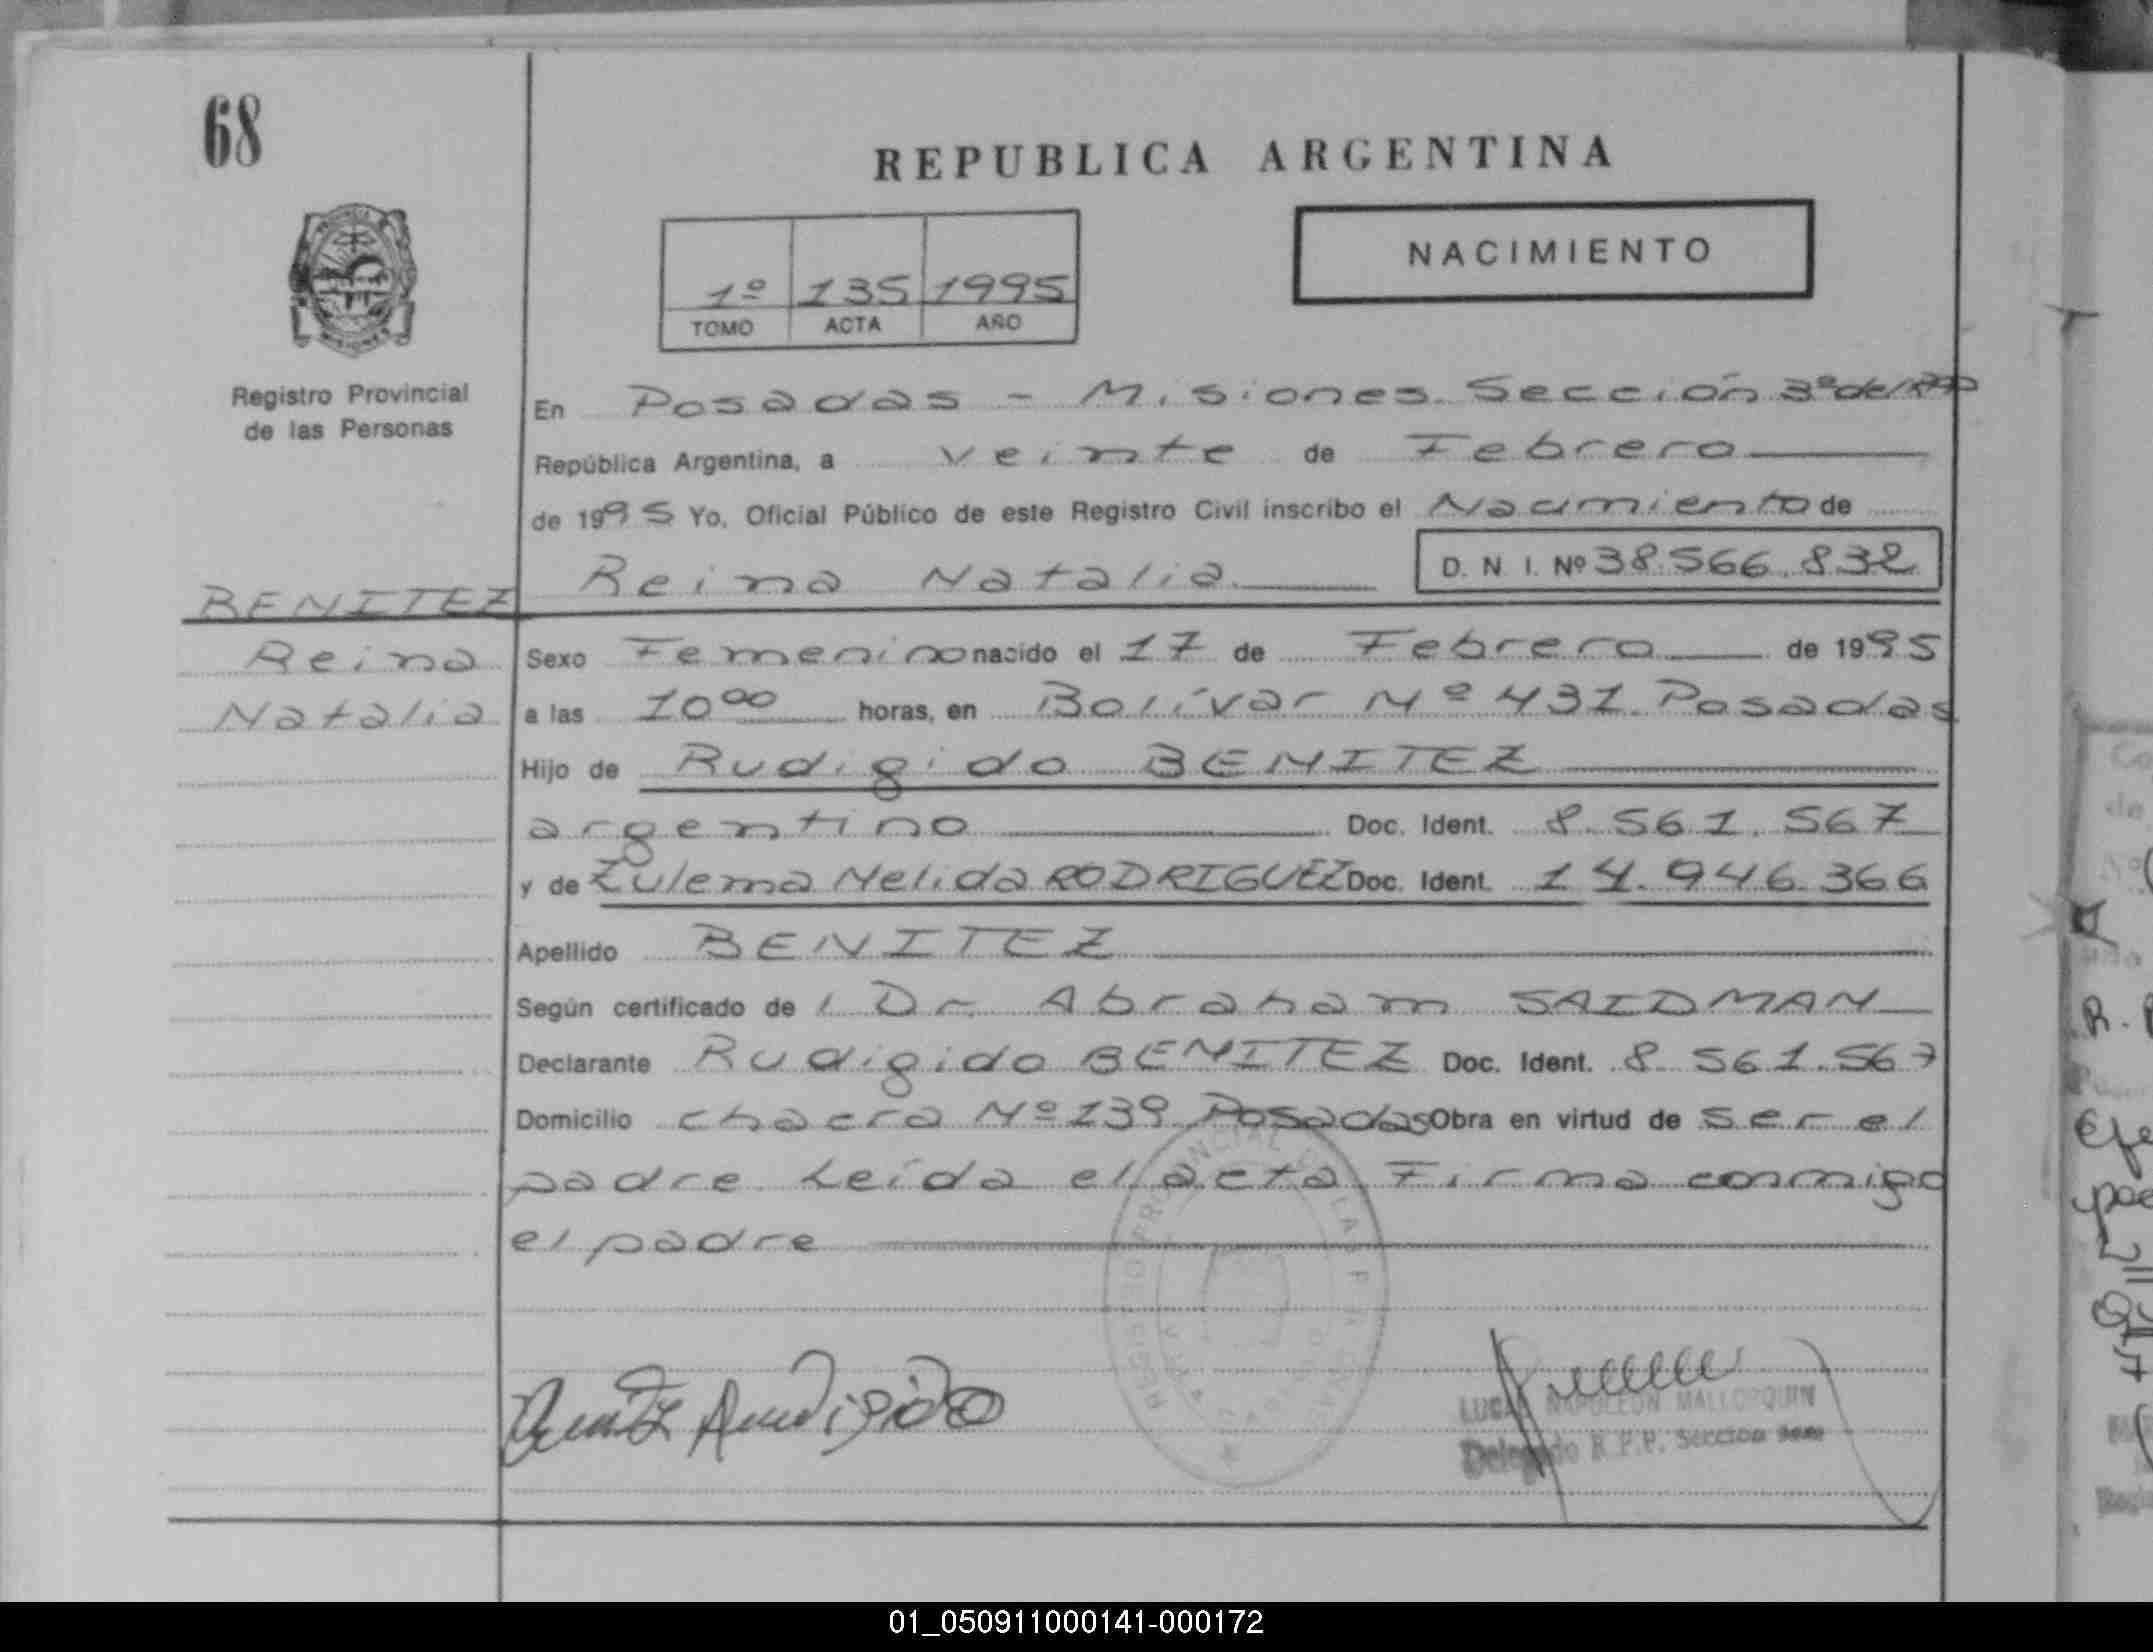 68
REPUBLICA ARGENTINA
NACIMIENTO
1º 135 1995
TOMO ACTA AÑO
Registro Provincial
de las Personas
En Posadas - Misiones Sección 3º del
República Argentina, a veinte de Febrero
de 1995 Yo, Oficial Público de este Registro Civil inscribo el Nacimiento de
Reina Natalia D. N. I. Nº 38.566.832
BENITEZ
Reina
Natalia
Sexo Femenino nacido el 17 de Febrero de 1995
a las 10°° horas, en Bolívar Nº 431 Posadas
Hijo de Rudigido BENITEZ
argentino Doc. Ident. 8.561.567
y de Zulema Nelida RODRIGUEZ Doc. Ident. 14.946.366
Apellido BENITEZ
Según certificado de / Dr. Abraham SAIDMAN
Declarante Rudigido BENITEZ Doc. Ident. 8.561.567
Domicilio chacra Nº 139 Posadas Obra en virtud de ser el
padre Leída el acta Firma conmigo
el padre
REGISTRO PROVINCIAL DE LAS PERSONAS
LUCAS NAPOLEON MALLORQUIN
Delegado R.P.P. Sección 3era
01_050911000141-000172